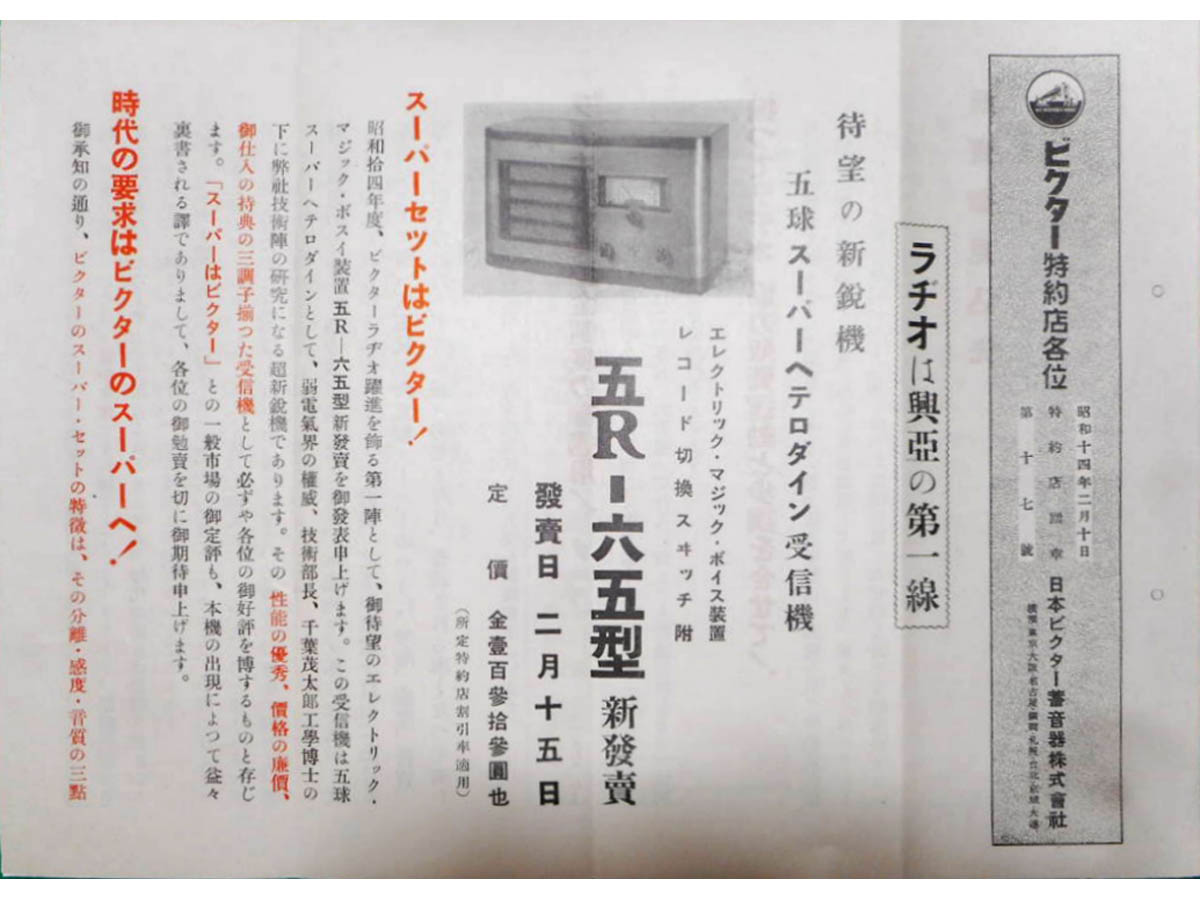 ビクター特約店各位
昭和十四年二月十日
特約店
第十七號
日本ビクター蓄音器株式會社
横濱・東京・大阪・名古屋・福岡・札幌・台北・京城・大連
ラヂオは興亞の第一線
待望の新銳機
五球スーパーヘテロダイン受信機
エレクトリック・マジック・ボイス装置
レコード切換スヰッチ附
五R-六五型 新發賣
發賣日 二月十五日
定價 金壹百參拾參圓也
(所定特約店割引率適用)
スーパーセットはビクター!
昭和拾四年度、ビクターラヂオ躍進を飾る第一陣として、御待望のエレクトリック・
マジック・ボスイ装置 五R―六五型 新發賣を御發表申上げます。この受信機は五球
スーパーヘテロダインとして、弱電氣界の權威、技術部長、千葉茂太郎工學博士の
下に弊社技術陣の研究になる超新銳機であります。その 性能の優秀、價格の廉價、
御仕入の特典の三調子揃つた受信機として必ずや各位の御好評を博するものと存じ
ます。「スーパーはビクター」との一般市場の御定評も、本機の出現によつて益々
裏書される譯でありまして、各位の御勉賣を切に御期待申上げます。
時代の要求はビクターのスーパーへ!
御承知の通り、ビクターのスーパー・セットの特徴は、その分離・感度・音質の三點